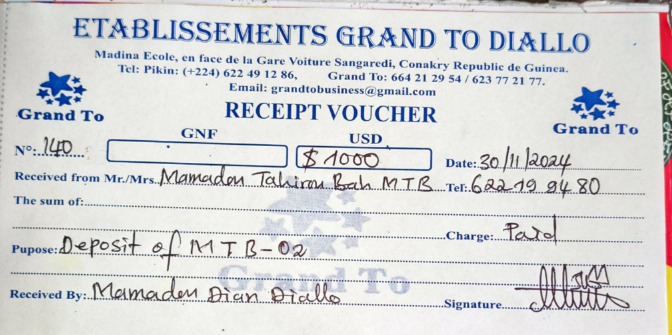 ETABLISSEMENTS GRAND TO DIALLO
Madina Ecole, en face de la Gare Voiture Sangaredi, Conakry Republic de Guinea.
Tel: Pikin: (+224) 622 49 12 86, Grand To: 664 21 29 54 / 623 77 21 77.
Email: grandtobusiness@gmail.com
Grand To
RECEIPT VOUCHER
Grand To
GNF USD
Nº: 140 $ 1000 Date: 30/11/2024
Received from Mr./Mrs. Mamadou Tahirou Bah MTB Tel: 622 19 94 80
The sum of:
Charge: Paid
Pupose: Deposit of MTB-02
Grand To
Received By: Mamadou Dian Diallo Signature